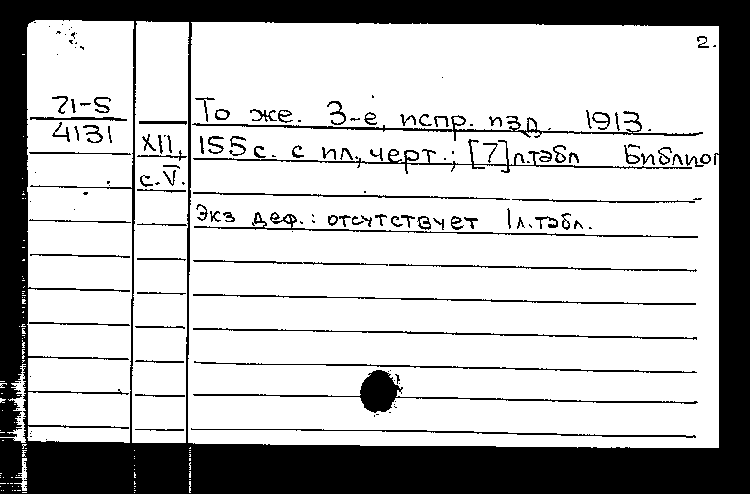 2.
71-5
4131
То же. 3-е, испр. изд. 1913.
XII, 155 с. с ил., черт.; [7] л. табл Библиог
с. V.
Экз деф.: отсутствует 1 л. табл.